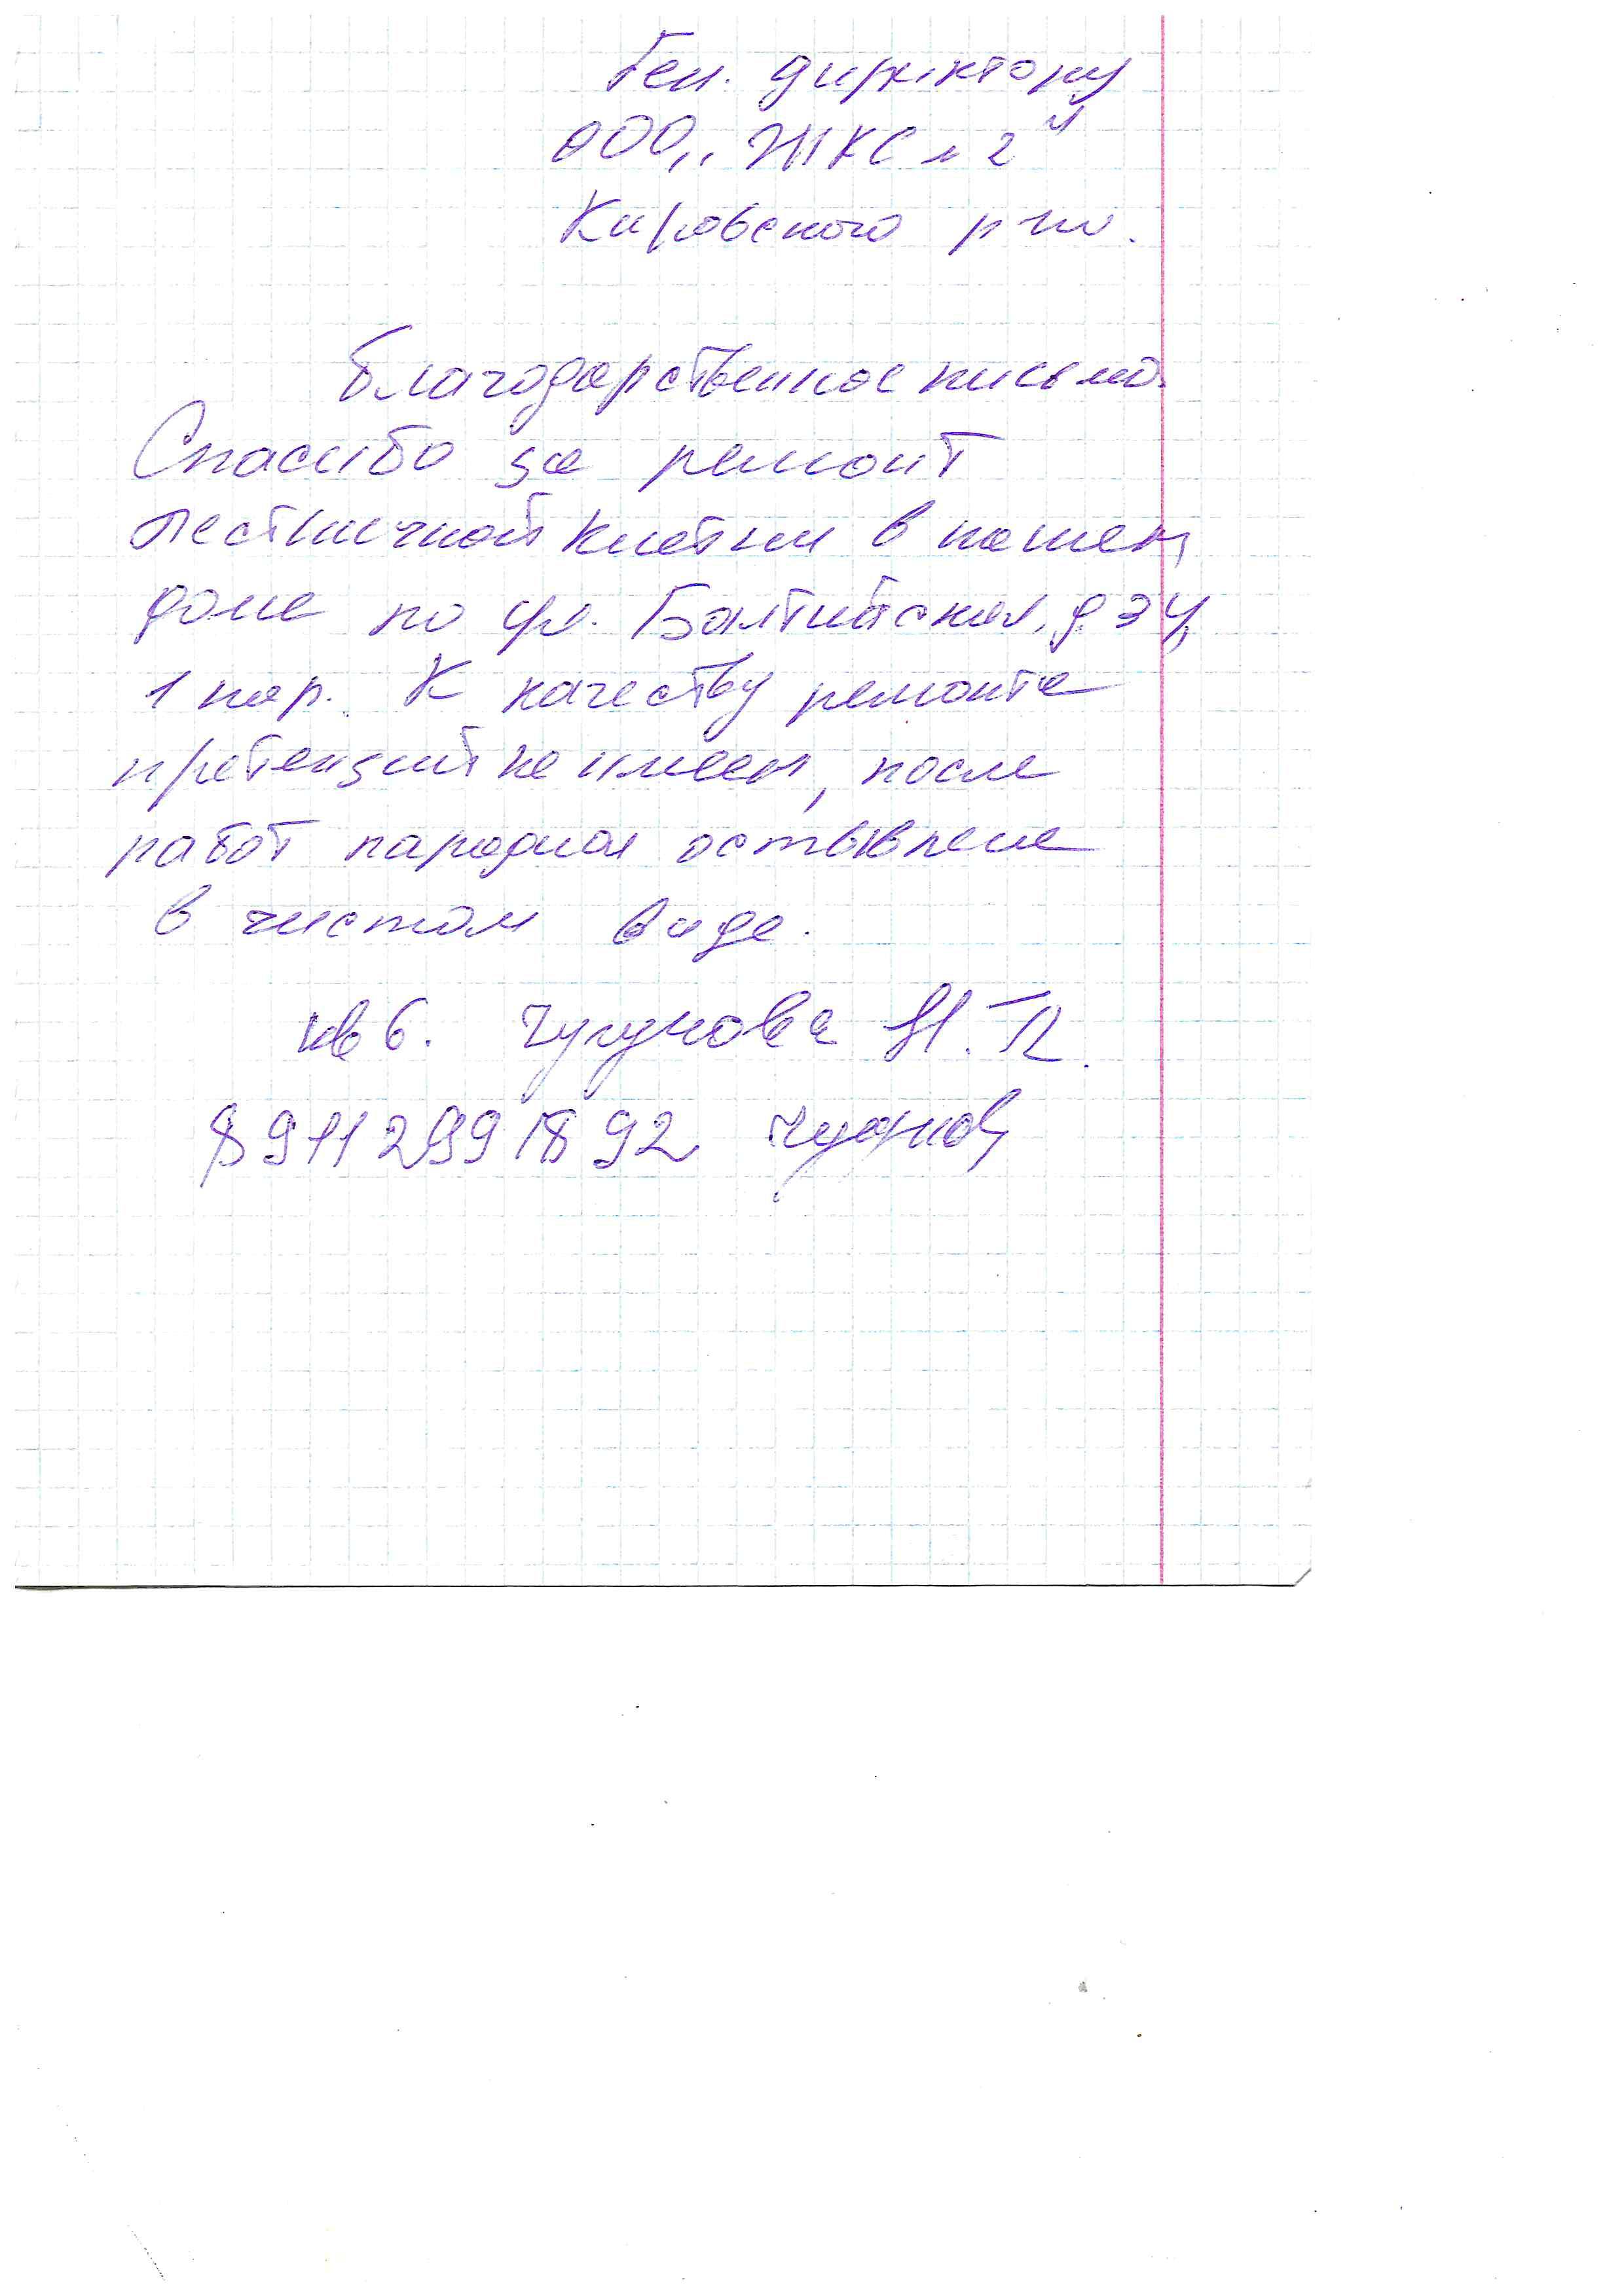 Ген. директору
ООО „ЖКС н 2"
Кировского р-на.
Благодарственное письмо.
Спасибо за ремонт
лестничной клетки в нашем
доме по ул. Балтийская, д 34
1 пар. К качеству ремонта
претензий не имеем, после
работ парадная оставлена
в чистом виде.
кв 6. Чугунова Н. П.
89112991892